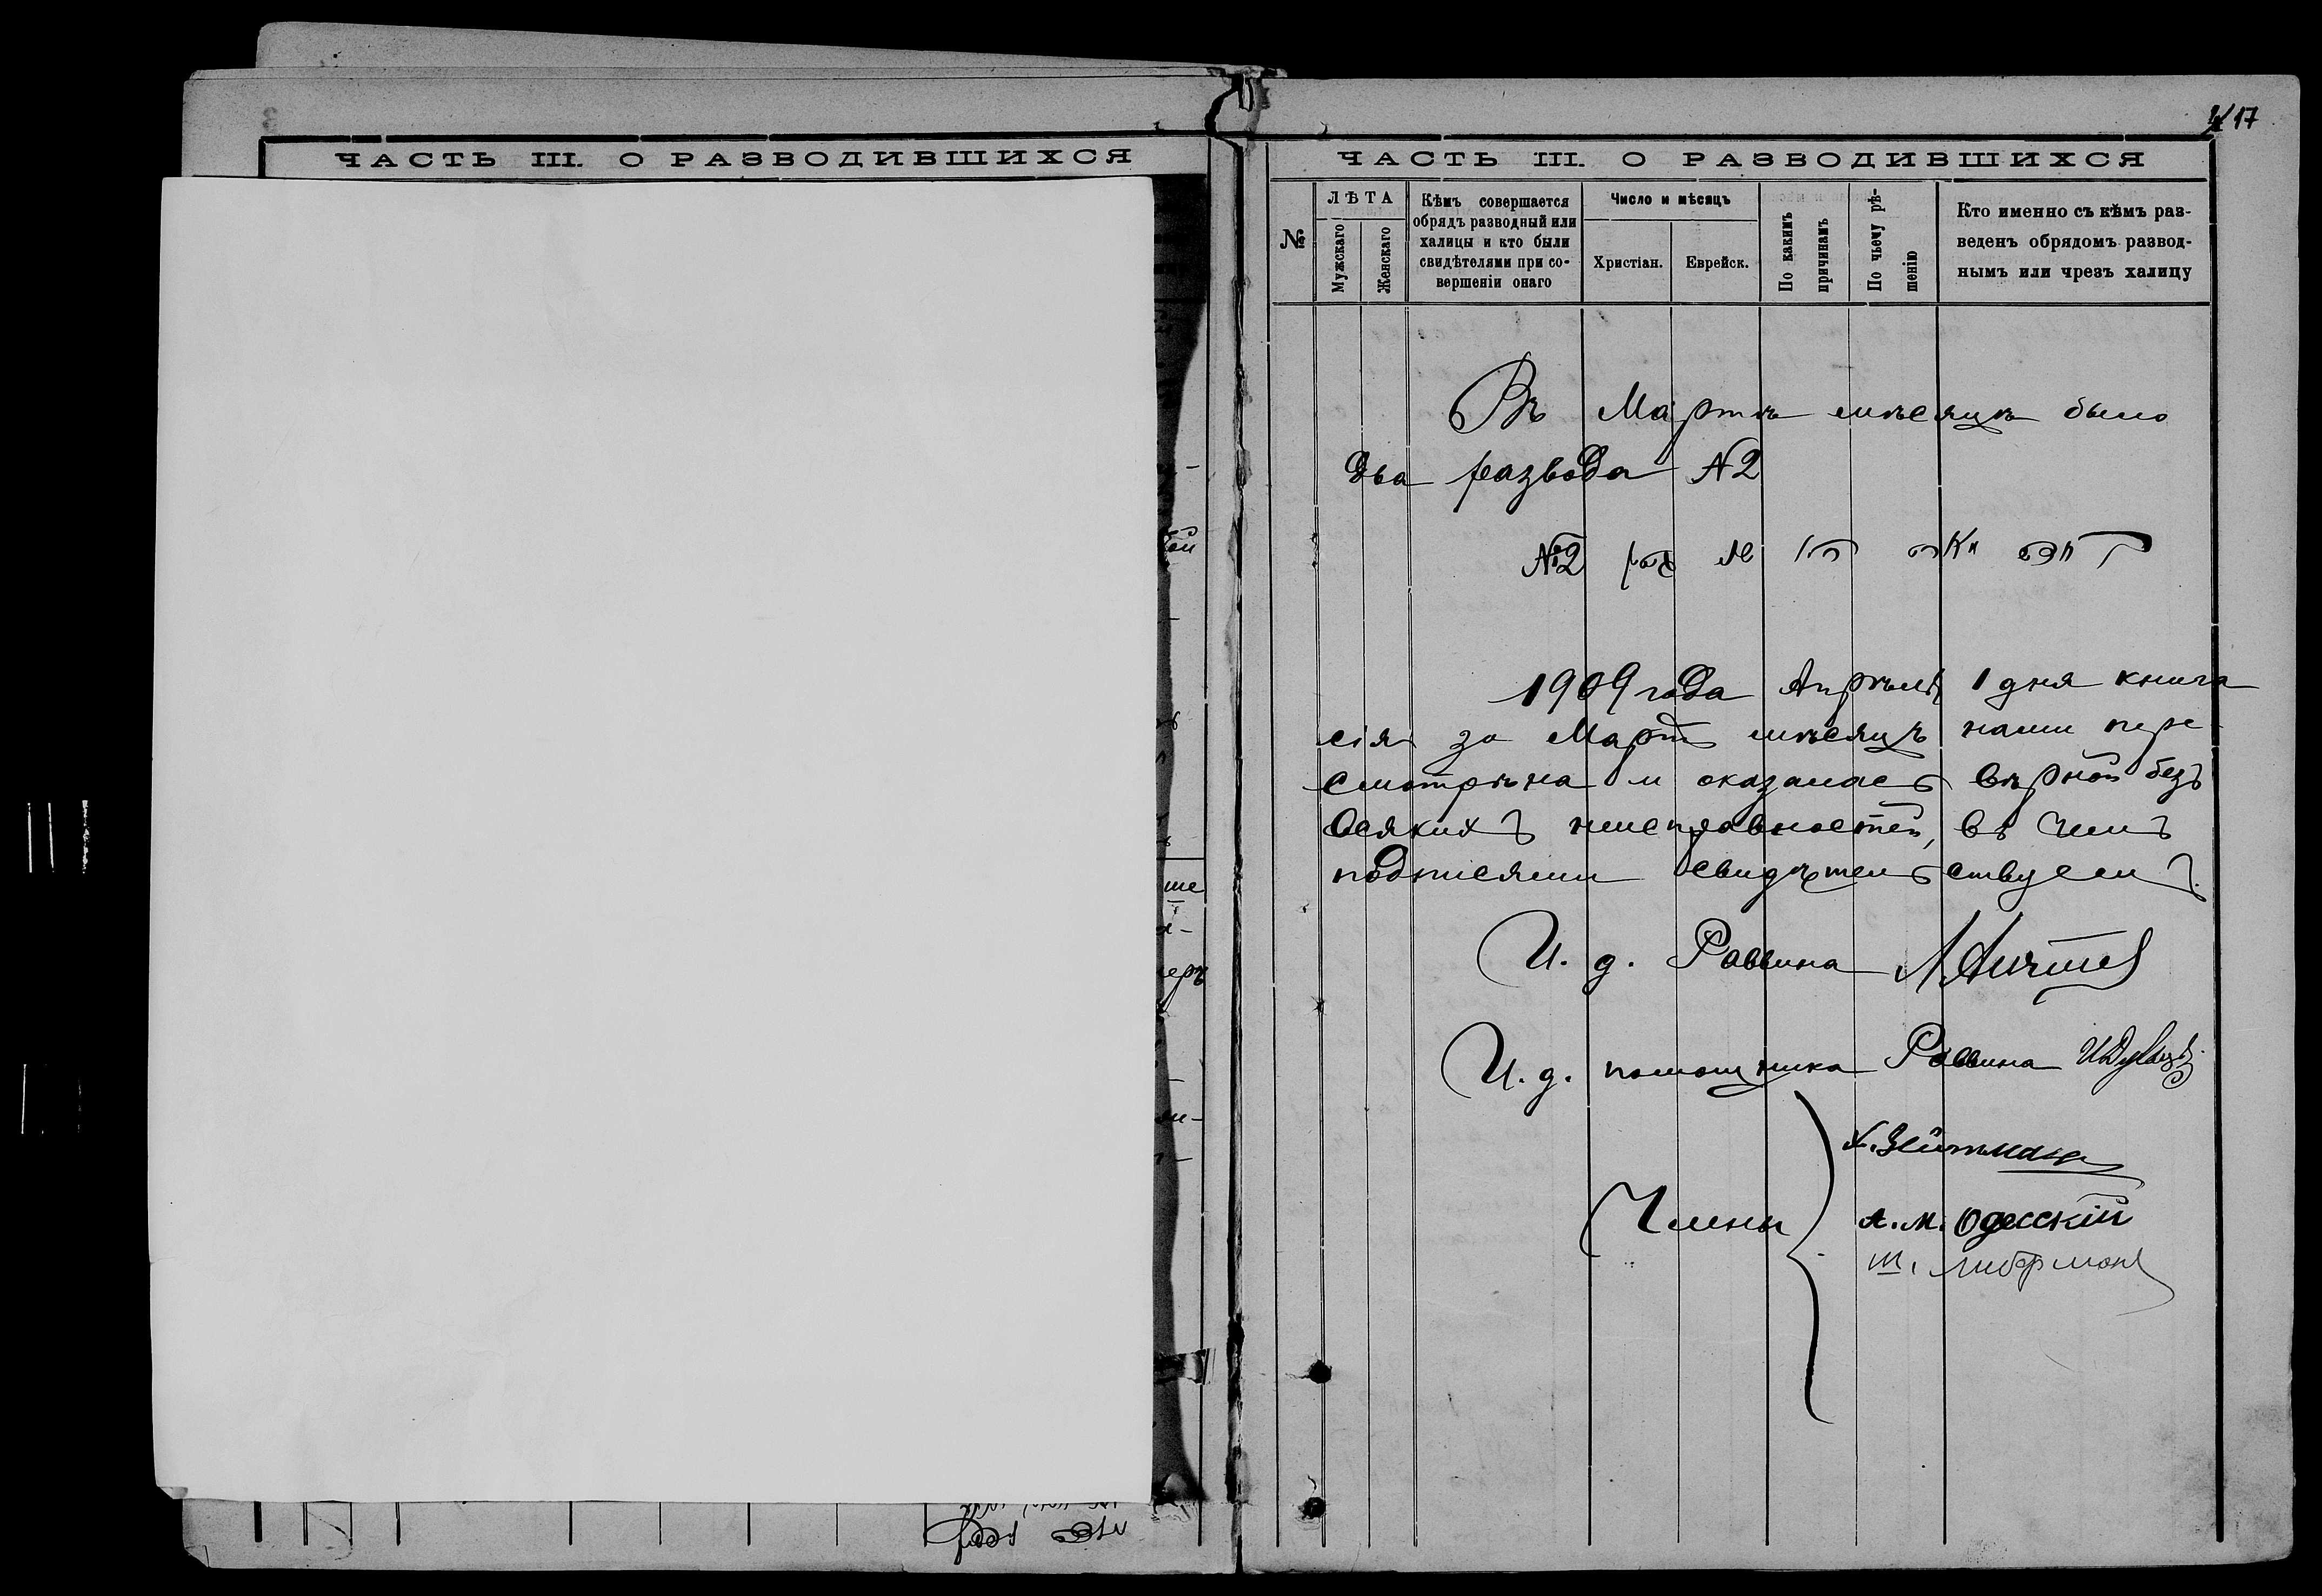 ЧАСТЬ III. О РАЗВОДИВШИХСЯ
17
ЧАСТЬ III. О РАЗВОДИВШИХСЯ
№
ЛѢТА
Мужскаго
Женскаго
Кѣмъ совершается
обрядъ разводный или
халицы и кто были
свидѣтелями при со-
вершеніи онаго
Число и мѣсяцъ
Христіан.
Еврейск.
По какимъ
причинамъ
По чьему рѣ-
шенію
Кто именно съ кѣмъ раз-
веденъ обрядомъ развод-
нымъ или чрезъ халицу
Въ Мартѣ мѣсяцѣ было
два развода №2
№2
1909 года Апрѣля 1 дня книга
сія за Мартъ мѣсяцъ нами пере-
смотрѣна и оказалась вѣрной безъ
всякихъ неисправностей, въ чемъ
подписями свидѣтельствуемъ.
И. д. Раввина
И. д. помощника Раввина
Х. Зейтманъ
Члены
А. М. Одесскій
Ш. Либерманъ